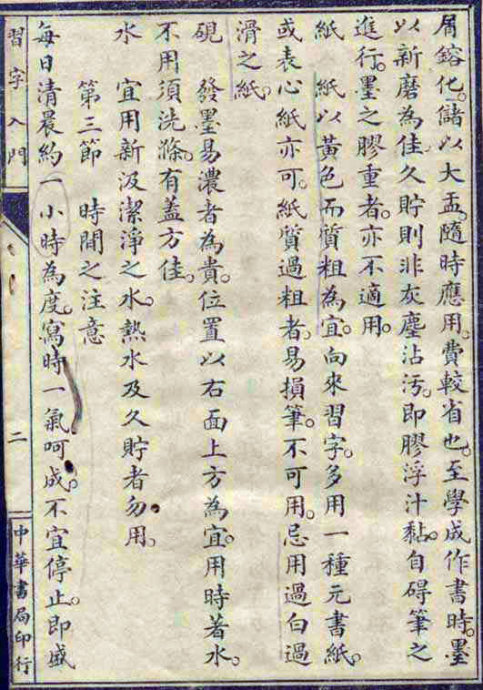 屑鎔化。儲以大盂。隨時應用。費較省也。至學成作書時。墨
以新磨為佳。久貯則非灰塵沾汚。即膠浮汁黏。自碍筆之
進行。墨之膠重者。亦不適用。
紙　紙以黃色而質粗為宜。向來習字。多用一種元書紙。
或表心紙亦可。紙質過粗者。易損筆。不可用。忌用過白過
滑之紙。
硯　發墨易濃者為貴。位置以右面上方為宜。用時著水。
不用須洗滌。有蓋方佳。
水　宜用新汲潔淨之水。熱水及久貯者勿用。
第三節　時間之注意
每日清晨約一小時為度。寫時一氣呵成。不宜停止。即盛
習字入門
二
中華書局印行